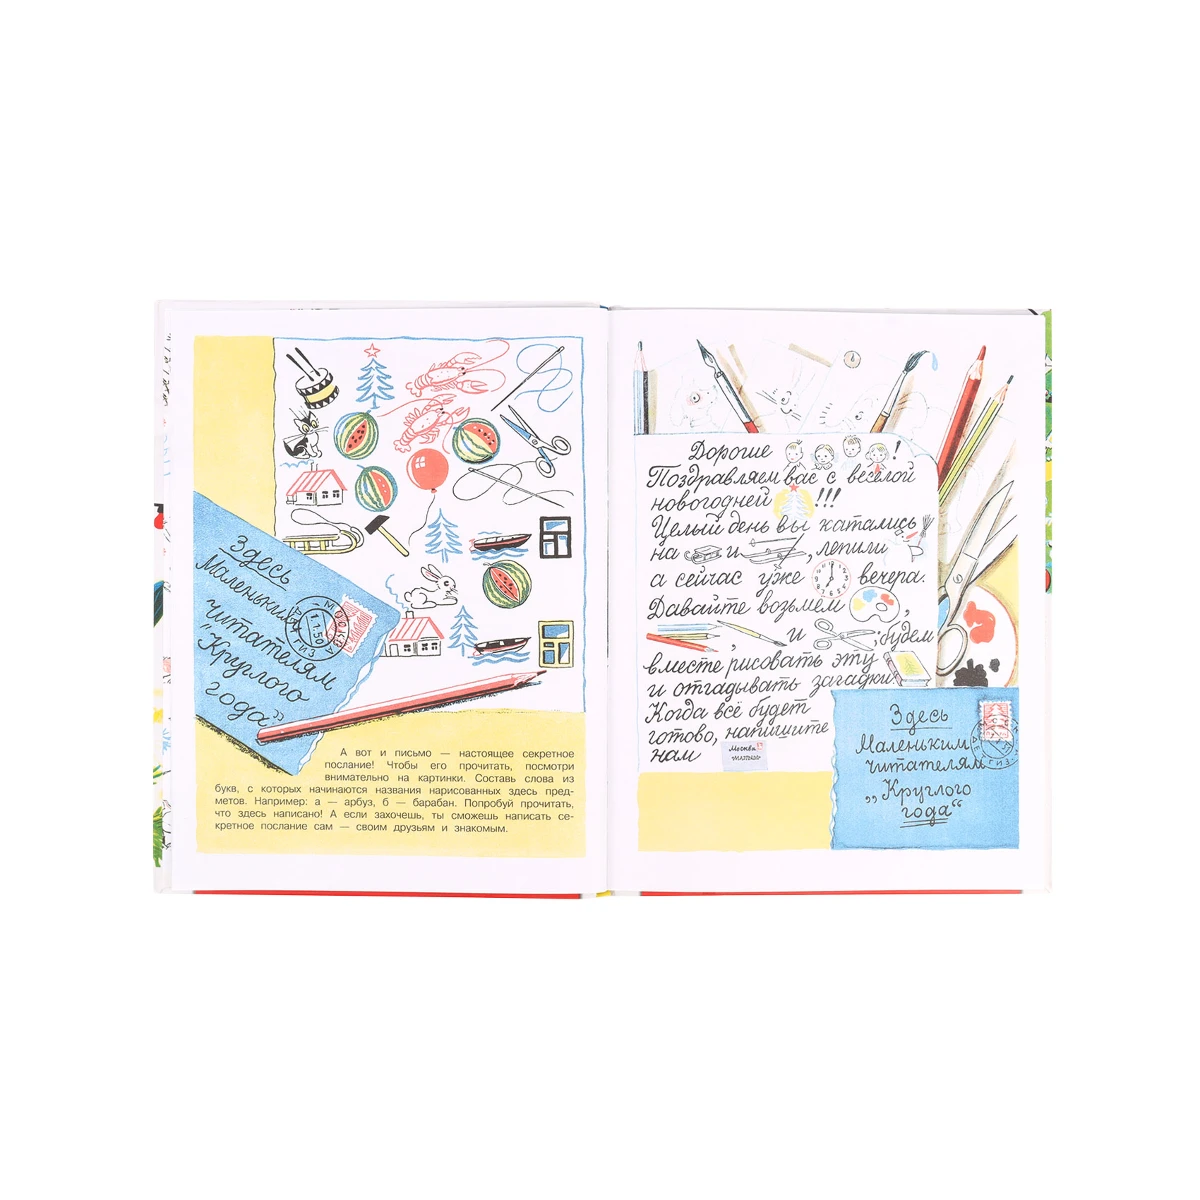 Здесь
Маленьким
читателям
"Круглого
года"
МОСКВА
1.1.50
ДЕТГИЗ
А вот и письмо — настоящее секретное
послание! Чтобы его прочитать, посмотри
внимательно на картинки. Составь слова из
букв, с которых начинаются названия нарисованных здесь пред-
метов. Например: а — арбуз, б — барабан. Попробуй прочитать,
что здесь написано! А если захочешь, ты сможешь написать се-
кретное послание сам — своим друзьям и знакомым.
Дорогие !
Поздравляем вас с весёлой
новогодней !!!
Целый день вы катались
на и , лепили
а сейчас уже вечера.
Давайте возьмём ,
, и ; будем
вместе рисовать эту
и отгадывать загадки.
Когда всё будет
готово, напишите
нам
Москва
Здесь
Маленьким
читателям
„Круглого
года“